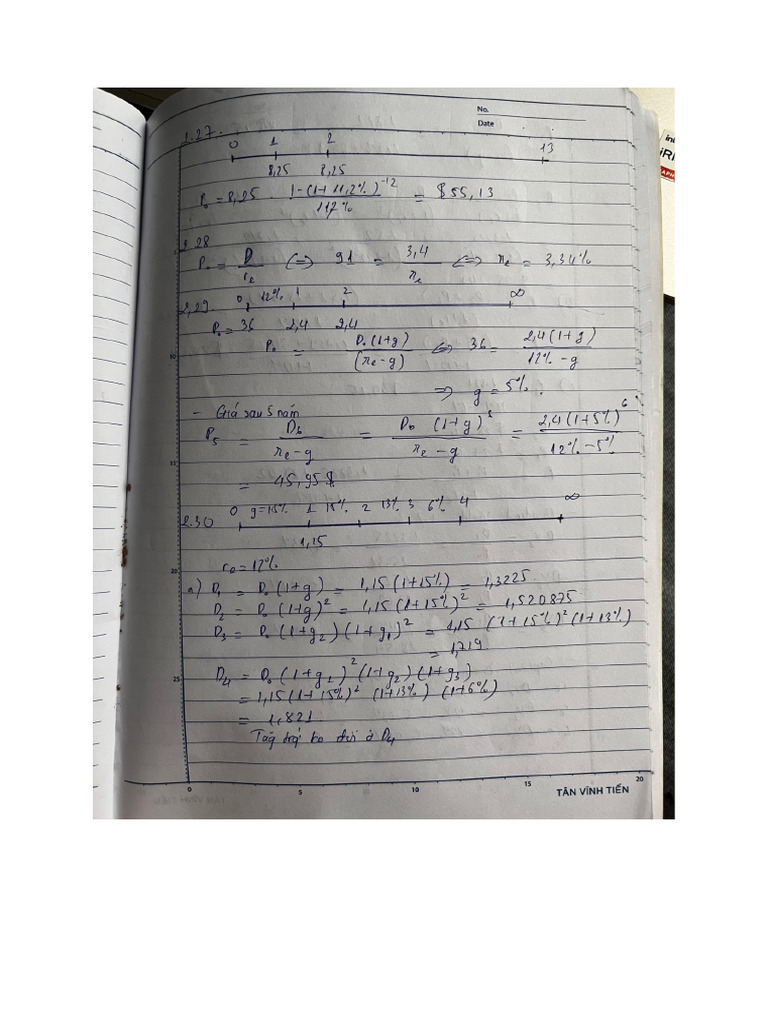 No.
Date
2.27.
0 1 2 13
8,25 8,25
P₀ = 8,25 . (1-(1+11,2%)^-12)/(11,2%) = $55,13
2.28
P₀ = D/rₑ <=> 91 = 3,4/rₑ <=> rₑ = 3,34%
2.29. 0 12% 1 2 ∞
P₀ = 36 2,4 2,4
P₀ = D₀(1+g)/(rₑ-g) <=> 36 = 2,4(1+g)/(12%-g)
=> g = 5%.
- Giá sau 5 năm
P₅ = D₆/(rₑ-g) = D₀(1+g)⁶/(rₑ-g) = 2,4(1+5%)⁶/(12%-5%)
= 45,95$
2.30 0 g=15% 1 15% 2 13% 3 6% 4 ∞
1,15
rₑ = 12%
a) D₁ = D₀(1+g) = 1,15(1+15%) = 1,3225
D₂ = D₀(1+g)² = 1,15(1+15%)² = 1,520875
D₃ = D₀(1+g₂)(1+g₁)² = 1,15(1+15%)²(1+13%)
= 1,719
D₄ = D₀(1+g₁)²(1+g₂)(1+g₃)
= 1,15(1+15%)² (1+13%) (1+6%)
= 1,821
ở D₄
10
20
25
0 5 10 15 20
TÂN VĨNH TIẾN